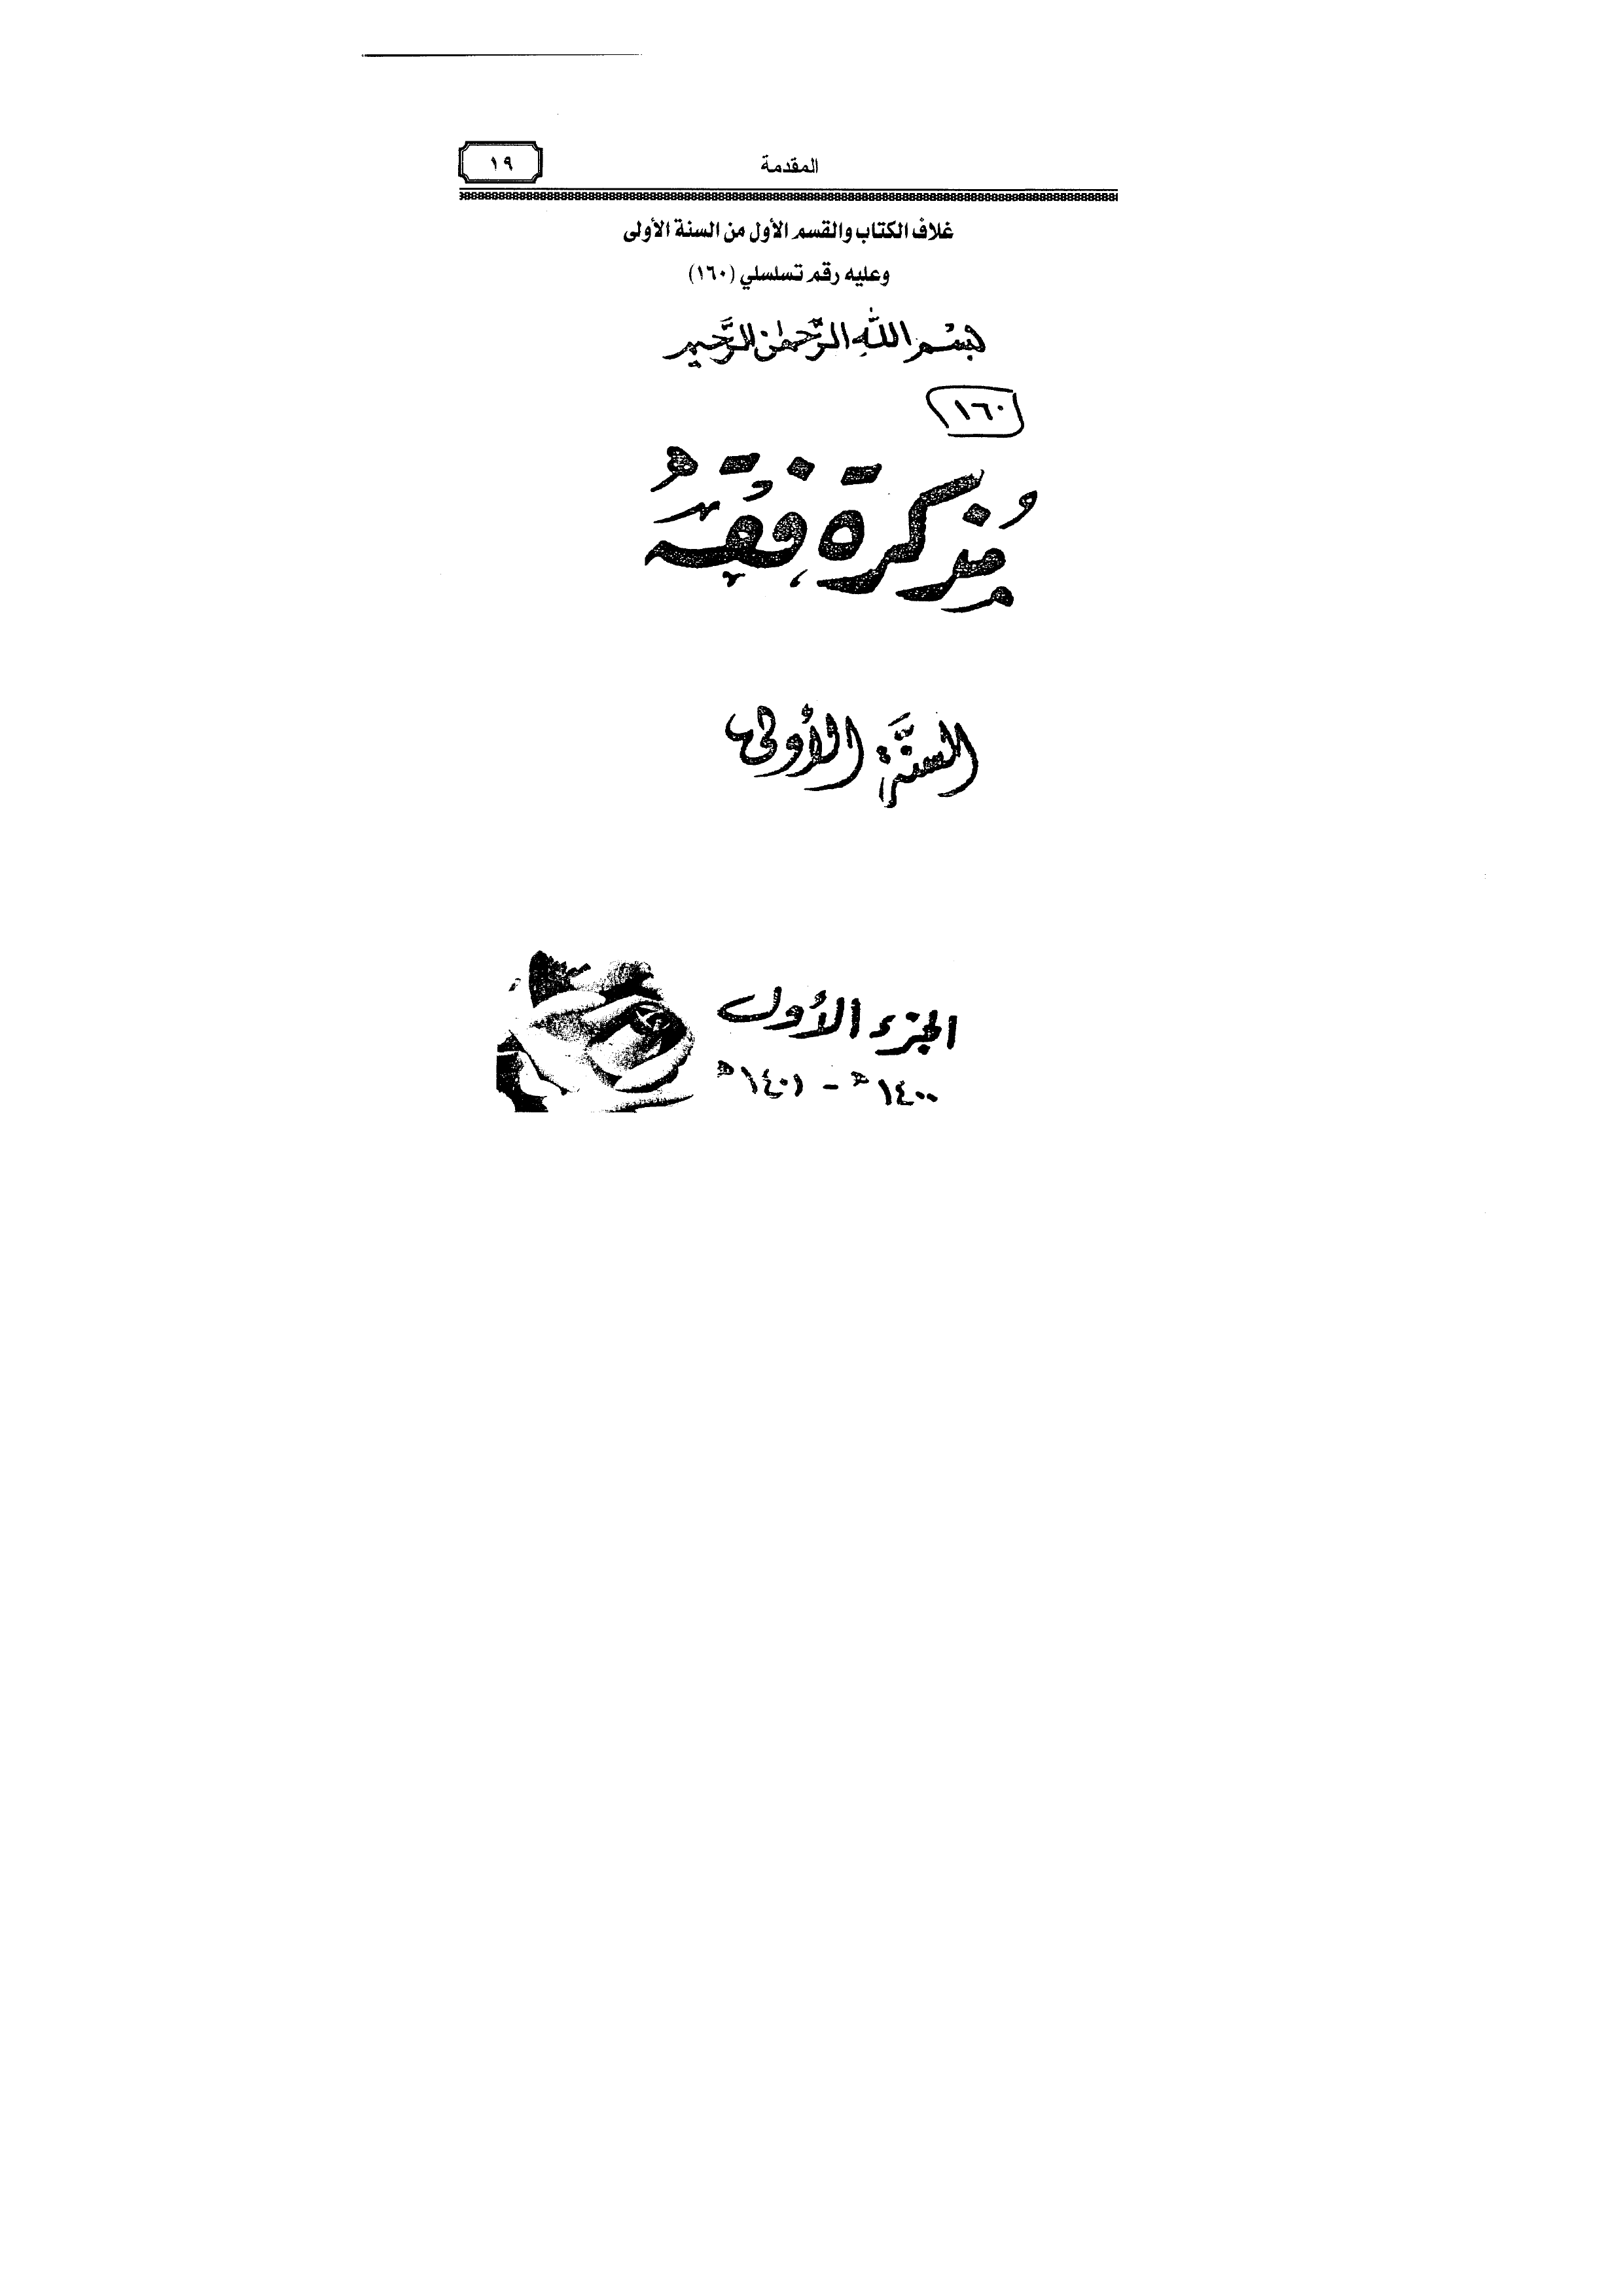 المقدمة
١٩
غلاف الكتاب والقسم الأول من السنة الأولى
وعليه رقم تسلسلي (١٦٠)
بِسْمِ اللَّهِ الرَّحْمٰنِ الرَّحِيمِ
١٦٠
مُذكرة فِقه
السنَّة الأولى
الجزء الأول
١٤٠٠هـ - ١٤٠١هـ